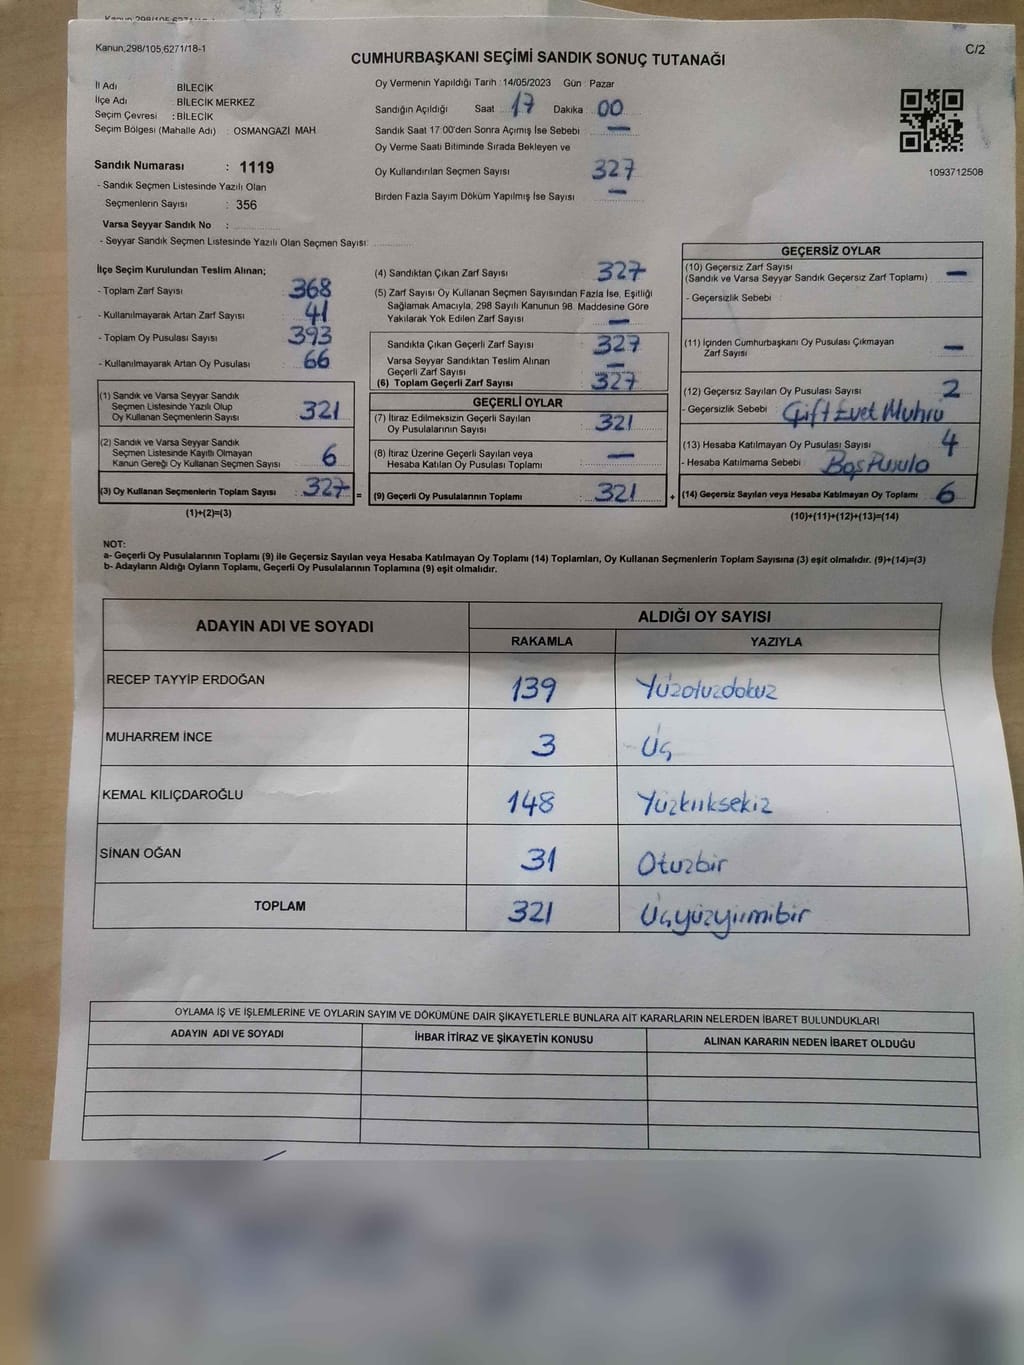 Kanun,298/105,6271/18-1
C/2
CUMHURBAŞKANI SEÇİMİ SANDIK SONUÇ TUTANAĞI
İl Adı BİLECİK
İlçe Adı : BİLECİK MERKEZ
Seçim Çevresi : BİLECİK
Seçim Bölgesi (Mahalle Adı) : OSMANGAZİ MAH.
Sandık Numarası : 1119
- Sandık Seçmen Listesinde Yazılı Olan
Seçmenlerin Sayısı : 356
Varsa Seyyar Sandık No :
- Seyyar Sandık Seçmen Listesinde Yazılı Olan Seçmen Sayısı:
Oy Vermenin Yapıldığı Tarih : 14/05/2023 Gün : Pazar
Sandığın Açıldığı Saat 17 Dakika 00
Sandık Saat 17 00'den Sonra Açımış İse Sebebi : —
Oy Verme Saati Bitiminde Sırada Bekleyen ve
Oy Kullandırılan Seçmen Sayısı 327
Birden Fazla Sayım Döküm Yapılmış İse Sayısı —
1093712508
İlçe Seçim Kurulundan Teslim Alınan;
- Toplam Zarf Sayısı : 368
- Kullanılmayarak Artan Zarf Sayısı : 41
- Toplam Oy Pusulası Sayısı : 393
- Kullanılmayarak Artan Oy Pusulası : 66
(1) Sandık ve Varsa Seyyar Sandık
Seçmen Listesinde Yazılı Olup
Oy Kullanan Seçmenlerin Sayısı : 321
(2) Sandık ve Varsa Seyyar Sandık
Seçmen Listesinde Kayıtlı Olmayan
Kanun Gereği Oy Kullanan Seçmen Sayısı : 6
(3) Oy Kullanan Seçmenlerin Toplam Sayısı : 327 =
(1)+(2)=(3)
(4) Sandıktan Çıkan Zarf Sayısı : 327
(5) Zarf Sayısı Oy Kullanan Seçmen Sayısından Fazla İse, Eşitliği
Sağlamak Amacıyla, 298 Sayılı Kanunun 98. Maddesine Göre
Yakılarak Yok Edilen Zarf Sayısı : —
Sandıkta Çıkan Geçerli Zarf Sayısı : 327
Varsa Seyyar Sandıktan Teslim Alınan
Geçerli Zarf Sayısı : —
(6) Toplam Geçerli Zarf Sayısı : 327
GEÇERLİ OYLAR
(7) İtiraz Edilmeksizin Geçerli Sayılan
Oy Pusulalarının Sayısı : 321
(8) İtiraz Üzerine Geçerli Sayılan veya
Hesaba Katılan Oy Pusulası Toplamı : —
(9) Geçerli Oy Pusulalarının Toplamı : 321 +
GEÇERSİZ OYLAR
(10) Geçersiz Zarf Sayısı
(Sandık ve Varsa Seyyar Sandık Geçersiz Zarf Toplamı) : —
- Geçersizlik Sebebi :
(11) İçinden Cumhurbaşkanı Oy Pusulası Çıkmayan
Zarf Sayısı : —
(12) Geçersiz Sayılan Oy Pusulası Sayısı : 2
- Geçersizlik Sebebi : Çift Evet Muhru
(13) Hesaba Katılmayan Oy Pusulası Sayısı : 4
- Hesaba Katılmama Sebebi : Boş Pusula
(14) Geçersiz Sayılan veya Hesaba Katılmayan Oy Toplamı : 6
(10)+(11)+(12)+(13)=(14)
NOT:
a- Geçerli Oy Pusulalarının Toplamı (9) ile Geçersiz Sayılan veya Hesaba Katılmayan Oy Toplamı (14) Toplamları, Oy Kullanan Seçmenlerin Toplam Sayısına (3) eşit olmalıdır. (9)+(14)=(3)
b- Adayların Aldığı Oyların Toplamı, Geçerli Oy Pusulalarının Toplamına (9) eşit olmalıdır.
ADAYIN ADI VE SOYADI
ALDIĞI OY SAYISI
RAKAMLA YAZIYLA
RECEP TAYYİP ERDOĞAN 139 Yüzotuzdokuz
MUHARREM İNCE 3 Üç
KEMAL KILIÇDAROĞLU 148 Yüzkırksekiz
SİNAN OĞAN 31 Otuzbir
TOPLAM 321 Üçyüzyirmibir
OYLAMA İŞ VE İŞLEMLERİNE VE OYLARIN SAYIM VE DÖKÜMÜNE DAİR ŞİKAYETLERLE BUNLARA AİT KARARLARIN NELERDEN İBARET BULUNDUKLARI
ADAYIN ADI VE SOYADI
İHBAR İTİRAZ VE ŞİKAYETİN KONUSU
ALINAN KARARIN NEDEN İBARET OLDUĞU